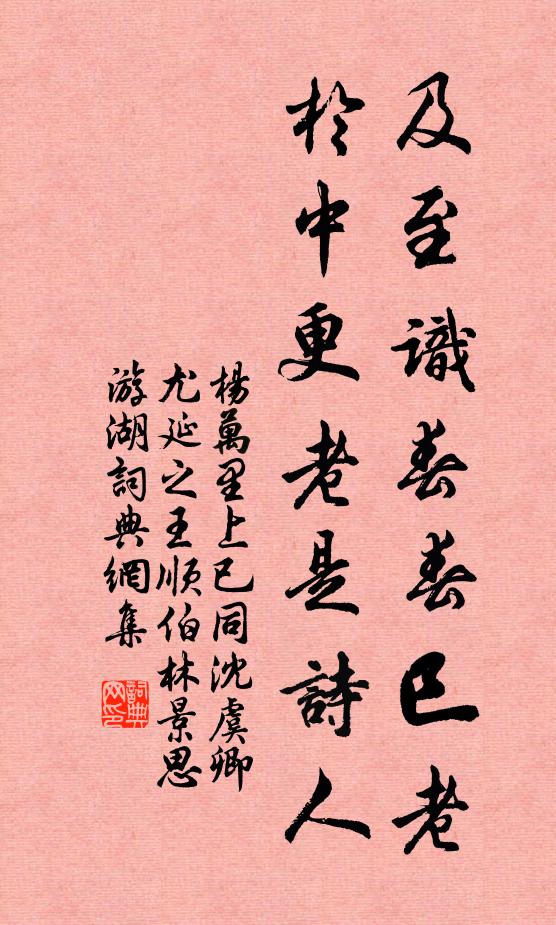 及至識春春已老
於中更老是詩人
楊萬里上已同沈虞卿
尤延之王順伯林景思
游湖詞典網集
詞典
网印